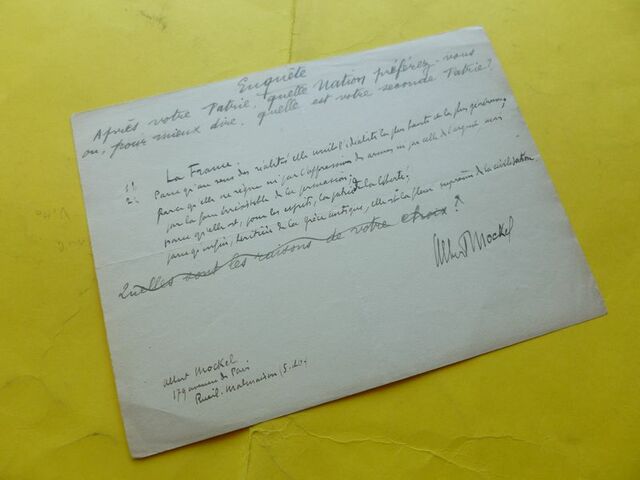 Enquête
Après votre Patrie, quelle Nation préférez-vous
ou, pour mieux dire, quelle est votre seconde Patrie?
1). La France.
2). Parce qu'au sens des réalités elle unit l'idéalité la plus haute et la plus généreuse,
Parce qu'elle ne règne ni par l'oppression des armes ni par celle de l'argent mais
par la force irrésistible de la persuasion;
parce qu'elle est, pour les esprits, la patrie de la liberté;
parce qu'enfin, héritière de la grâce antique, elle est la fleur suprême de la civilisation.
Quelles sont les raisons de votre choix?
Albert Mockel
Albert Mockel
179 avenue de Paris
Rueil-Malmaison (S.-et-O.)